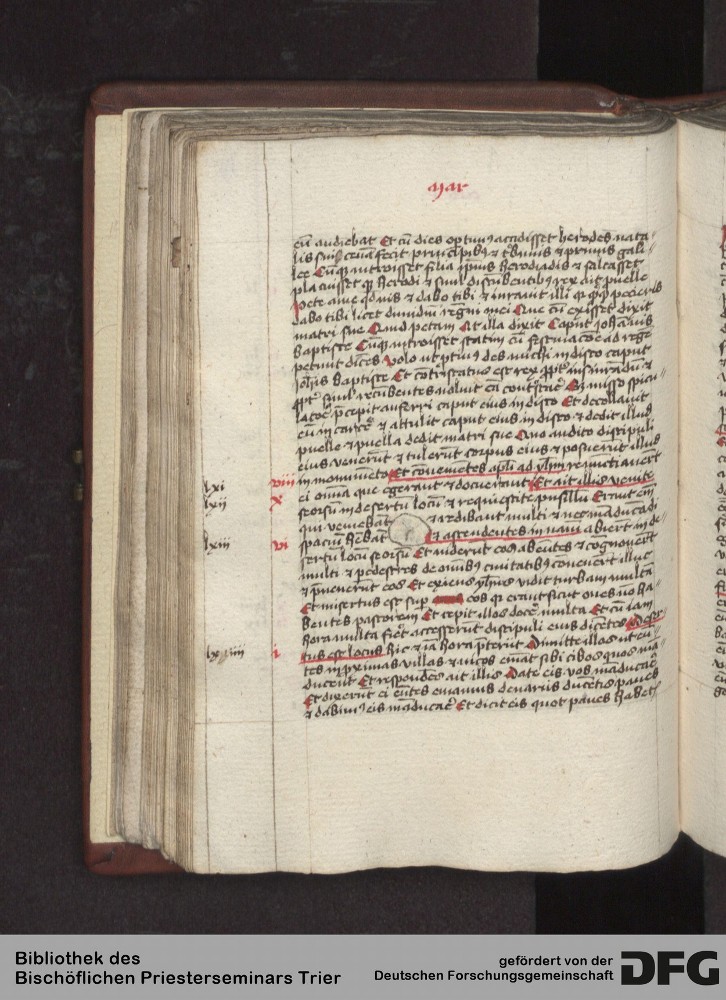 Mar
eū audiebat Et cū dies optimus accidisset herodes nata
lis sui cenā fecit principibus et tribunis et primis gali
lee Cumque introisset filia ipius herodiadis et saltasset
placuisset que herodi et simul discūbentibus rex dixit puelle
Pete a me quod vis et dabo tibi et iuravit illi quia quidquid pecieris
dabo tibi licet dimidiū regni mei Que cū exisset dixit
matri sue Quid petam At illa dixit Caput Johānis
baptiste Cumque introisset statim cū festinacōe ad regē
petivit dicēs volo ut des michi in disco caput
Johīs baptiste Et cōtristatus est rex propter iusiurādū et
propter simul recūbentes noluit eā contristare Et misso spicu
latore precepit auferri caput eius in disco Et decollavit
eū in carcere et attulit caput eius in disco et dedit illud
puelle et puella dedit matri sue Quo audito discipuli
eius venerūt et tulerūt corpus eius et posuerūt illud
in monumēto Et cōvenientes apli ad yhm renūciaverūt
lxi viii ei omnia que egerant et docuerant Et ait illis venite
lxii x seorsum in desertū locū et requiescite pusillū Erant enī
qui veniebāt et redibant multi et nec māducādi
lxiii vi spaciū hēbāt Et ascendentes in navī abierūt in de
sertū locū seorsū Et viderūt eos abeūtes et cognoverūt
multi et pedestres de omnibus civitatibus concurrerūt illuc
et prevenerūt eos Et exiens vidit turbam multā
Et misertus est sup eos quia erant sicut oves nō ha
bentes pastorem Et cepit illos docere multa Et cū iam
hora multa fieret accesserūt discipuli eius dicētes Deser
lxiiii i tus est locus hic et iā hora preteriit Dimitte illos ut eū
tes in proximas villas et vicos emāt sibi cibos quos mā
ducent Et respondēs ait illis Date eis vos māducare
Et dixerūt ei eūtes emamus denariis ducētis panes
et dabimus eis māducare Et dicit eis quot panes habetis
Bibliothek des
Bischöflichen Priesterseminars Trier
gefördert von der
Deutschen Forschungsgemeinschaft
DFG